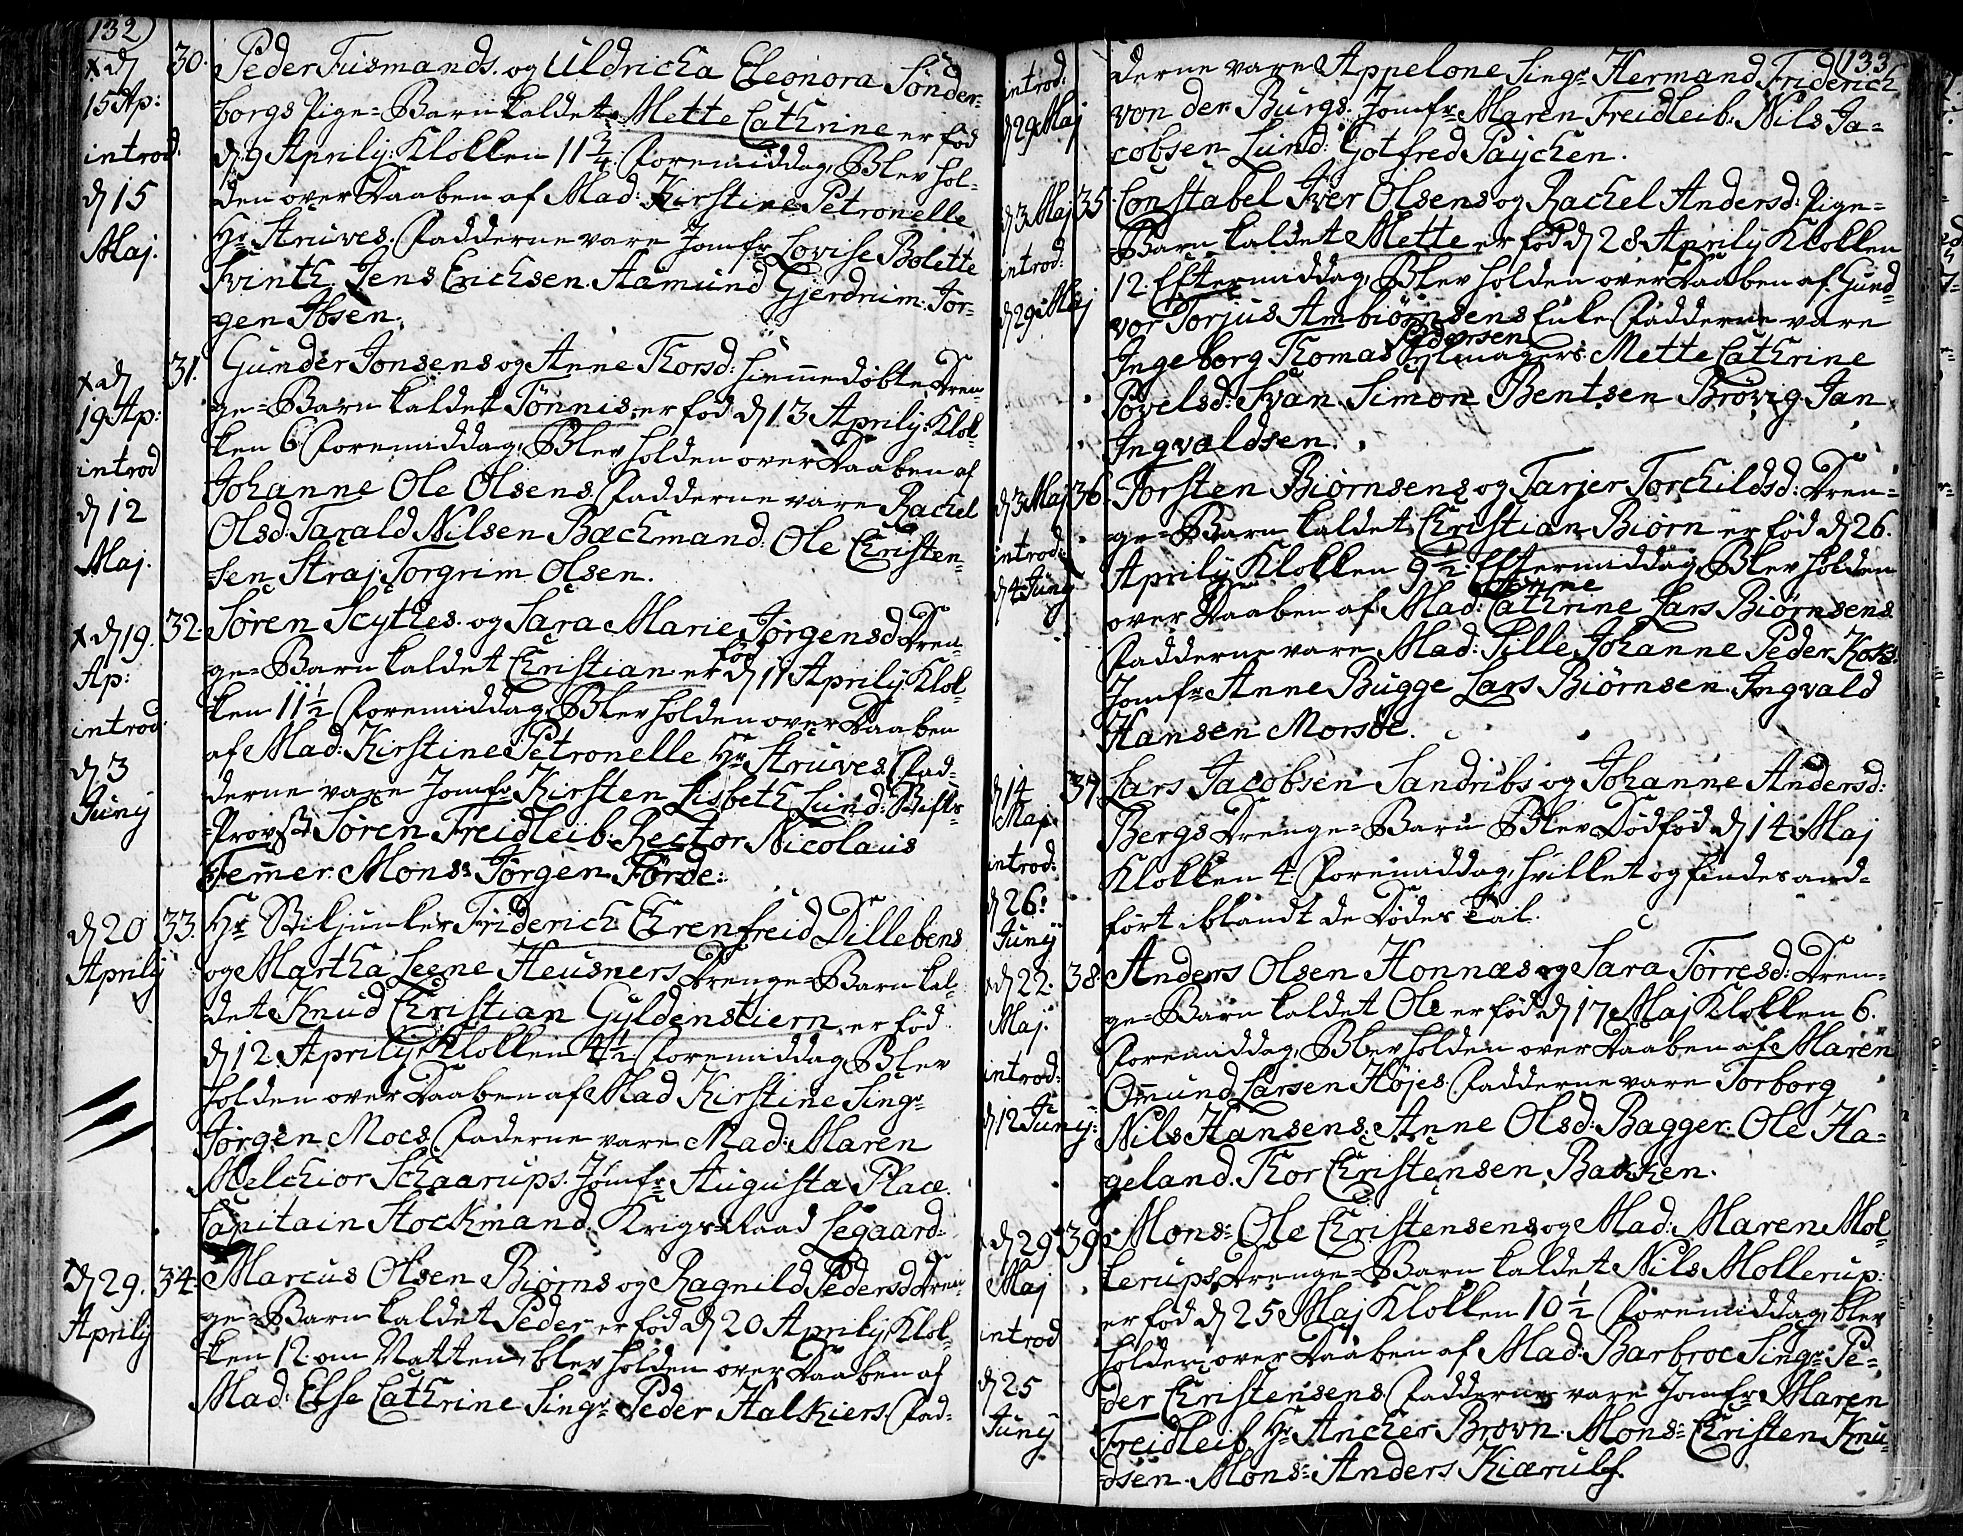 132)
x d 30. Peder Fusmands. og Uldricha Eleonora Sönder-
15 Ap: borgs Pige=Barn kaldet Mette Cathrine er fød
introd: d 9 Aprilij. Klokken 11 3/4 Formiddag, Blev hol-
d 15 den over Daaben af Mad: Kirstine Petronelle
Maj. Hr Struves. Fadderne vare Jomfr Lovise Bolette
Kvinth. Jens Erichsen. Aamund Gjerdrum. Jör-
gen Ibsen.
x d 31. Gunder Jonsens og Anne Thorsd: hiemmedöbte Dren-
19 Ap: ge=Barn kaldet Tönnis, er fød d 13 Aprilij. Klok-
introd ken 6 Formiddag, Blev holden over Daaben af
d 12 Johanne Ole Olsens. Fadderne vare Rachel
Maj. Olsd: Tarald Nilsen Bachmand: Ole Christen-
sen Straj. Torgrim Olsen.
x d 19. 32. Søren Scyttes. og Sara Marie Jørgensd Dren-
Ap: ge=Barn kaldet Christian er fød d 11 Aprilij. Klok-
introd: ken 11 1/2 Formiddag, Blev holden over Daaben
d 3 af Mad: Kirstine Petronelle Hr Struves. Fad-
Junij derne vare Jomfr Kirsten Lisbeth Lund: Vise-
=Provst Søren Freidleib. Rector Nicolaus
Temer. Mons: Jørgen Förde:
d 20 33. Hr Stikjunker Friderich Ehrenfreid Dillebens
Aprilij og Martha Leene Heusners Drenge=Barn kal-
det Knud Christian Gyldenstiern, er fød
d 12. Aprilij Klokken 4 1/2 Formiddag, Blev
holden over Daaben af Mad Kirstine Sing:
Jørgen Moes. Faderne vare Mad: Maren
Melchior Schaarups. Jomfr Augusta Place.
Capitain Stockmand. Krigs=Raad Legaard:
d 29. 34. Marcus Olsen Biørns og Ragnild Pedersd Dren-
Aprilij ge=Barn kaldet Peder er fød d 20 Aprilij, Klok-
ken 12. om Natten, blev holden over Daaben af
Mad: Else Cathrine Sing: Peder Halkiers. Fad-
133
introd: derne vare Appelone Sing: Hermand Friderich
d 29 Maj von der Burgs: Jomfr Maren Freidleib. Nils Ja-
cobsen Lund: Gotfred Paijchen.
d 3 Maj 35. Constabel Iver Olsens og Rachel Andersd: Pige=
introd: Barn kaldet Mette er fød d 28 Aprilij Klokken
d 29 Maj 12. Eftermiddag, Blev holden over Daaben af Gund-
vor Torjus Ambiörnsens Enke Fadderne vare
Pedersen
Ingeborg Thomas Mette Cathrine
Povelsd: Svan Simon Bentsen Brövig. Jan
Ingvaldsen.
d 3 Maj 36. Torsten Biörnsens og Tarjer Torchildsd: Dren-
introd: ge=Barn kaldet Christian Biörn er fød d 26.
d 4 Junij Aprilij Klokken 9 1/2 Eftermiddag, Blev holden
over Daaben af Mad: Cathrine Lars Biörnsens
Fadderne vare Mad: Sille Johanne Peder Koks.
Jomfr Anne Bugge Lars Biörnsen. Ingvald
Hansen Morsöe.
d 14 37. Lars Jacobsen Sandribs og Johanne Andersd:
Maj. Bergs Drenge=Barn Blev Dødfød d 14 Maj
introd: Klokken 4. Formiddag, hvilket og findes and-
d 26. fört iblandt de Dødes Tal.
Junij
x d 22. 38. Anders Olsen Honnæs og Sara Torresd: Dren-
Maj. ge=Barn kaldet Ole er fød d 17 Maj Klokken 6.
introd: Formiddag, Blev holden over Daaben af Maren
d 12 Junij: Omund Larsen Höjes Fadderne vare Torborg
Nils Hansens. Anne Olsd: Bagger. Ole Ha-
geland. Thor Christensen Bakken.
d 29 39. Mons: Ole Christensens og Mad: Maren Mol-
Maj lerups Drenge=Barn kaldet Nils Mollerup:
introd er fød d 25 Maj Klokken 10 1/2 Formiddag, blev
d 25 holden over Daaben af Mad: Barbroe Sing: Pe-
Junij der Christensens. Fadderne vare Jomfr Maren
Freidleib, Hr Ancher Brovn. Mons: Christen Knu-
dsen. Mons: Anders Kiærulf.